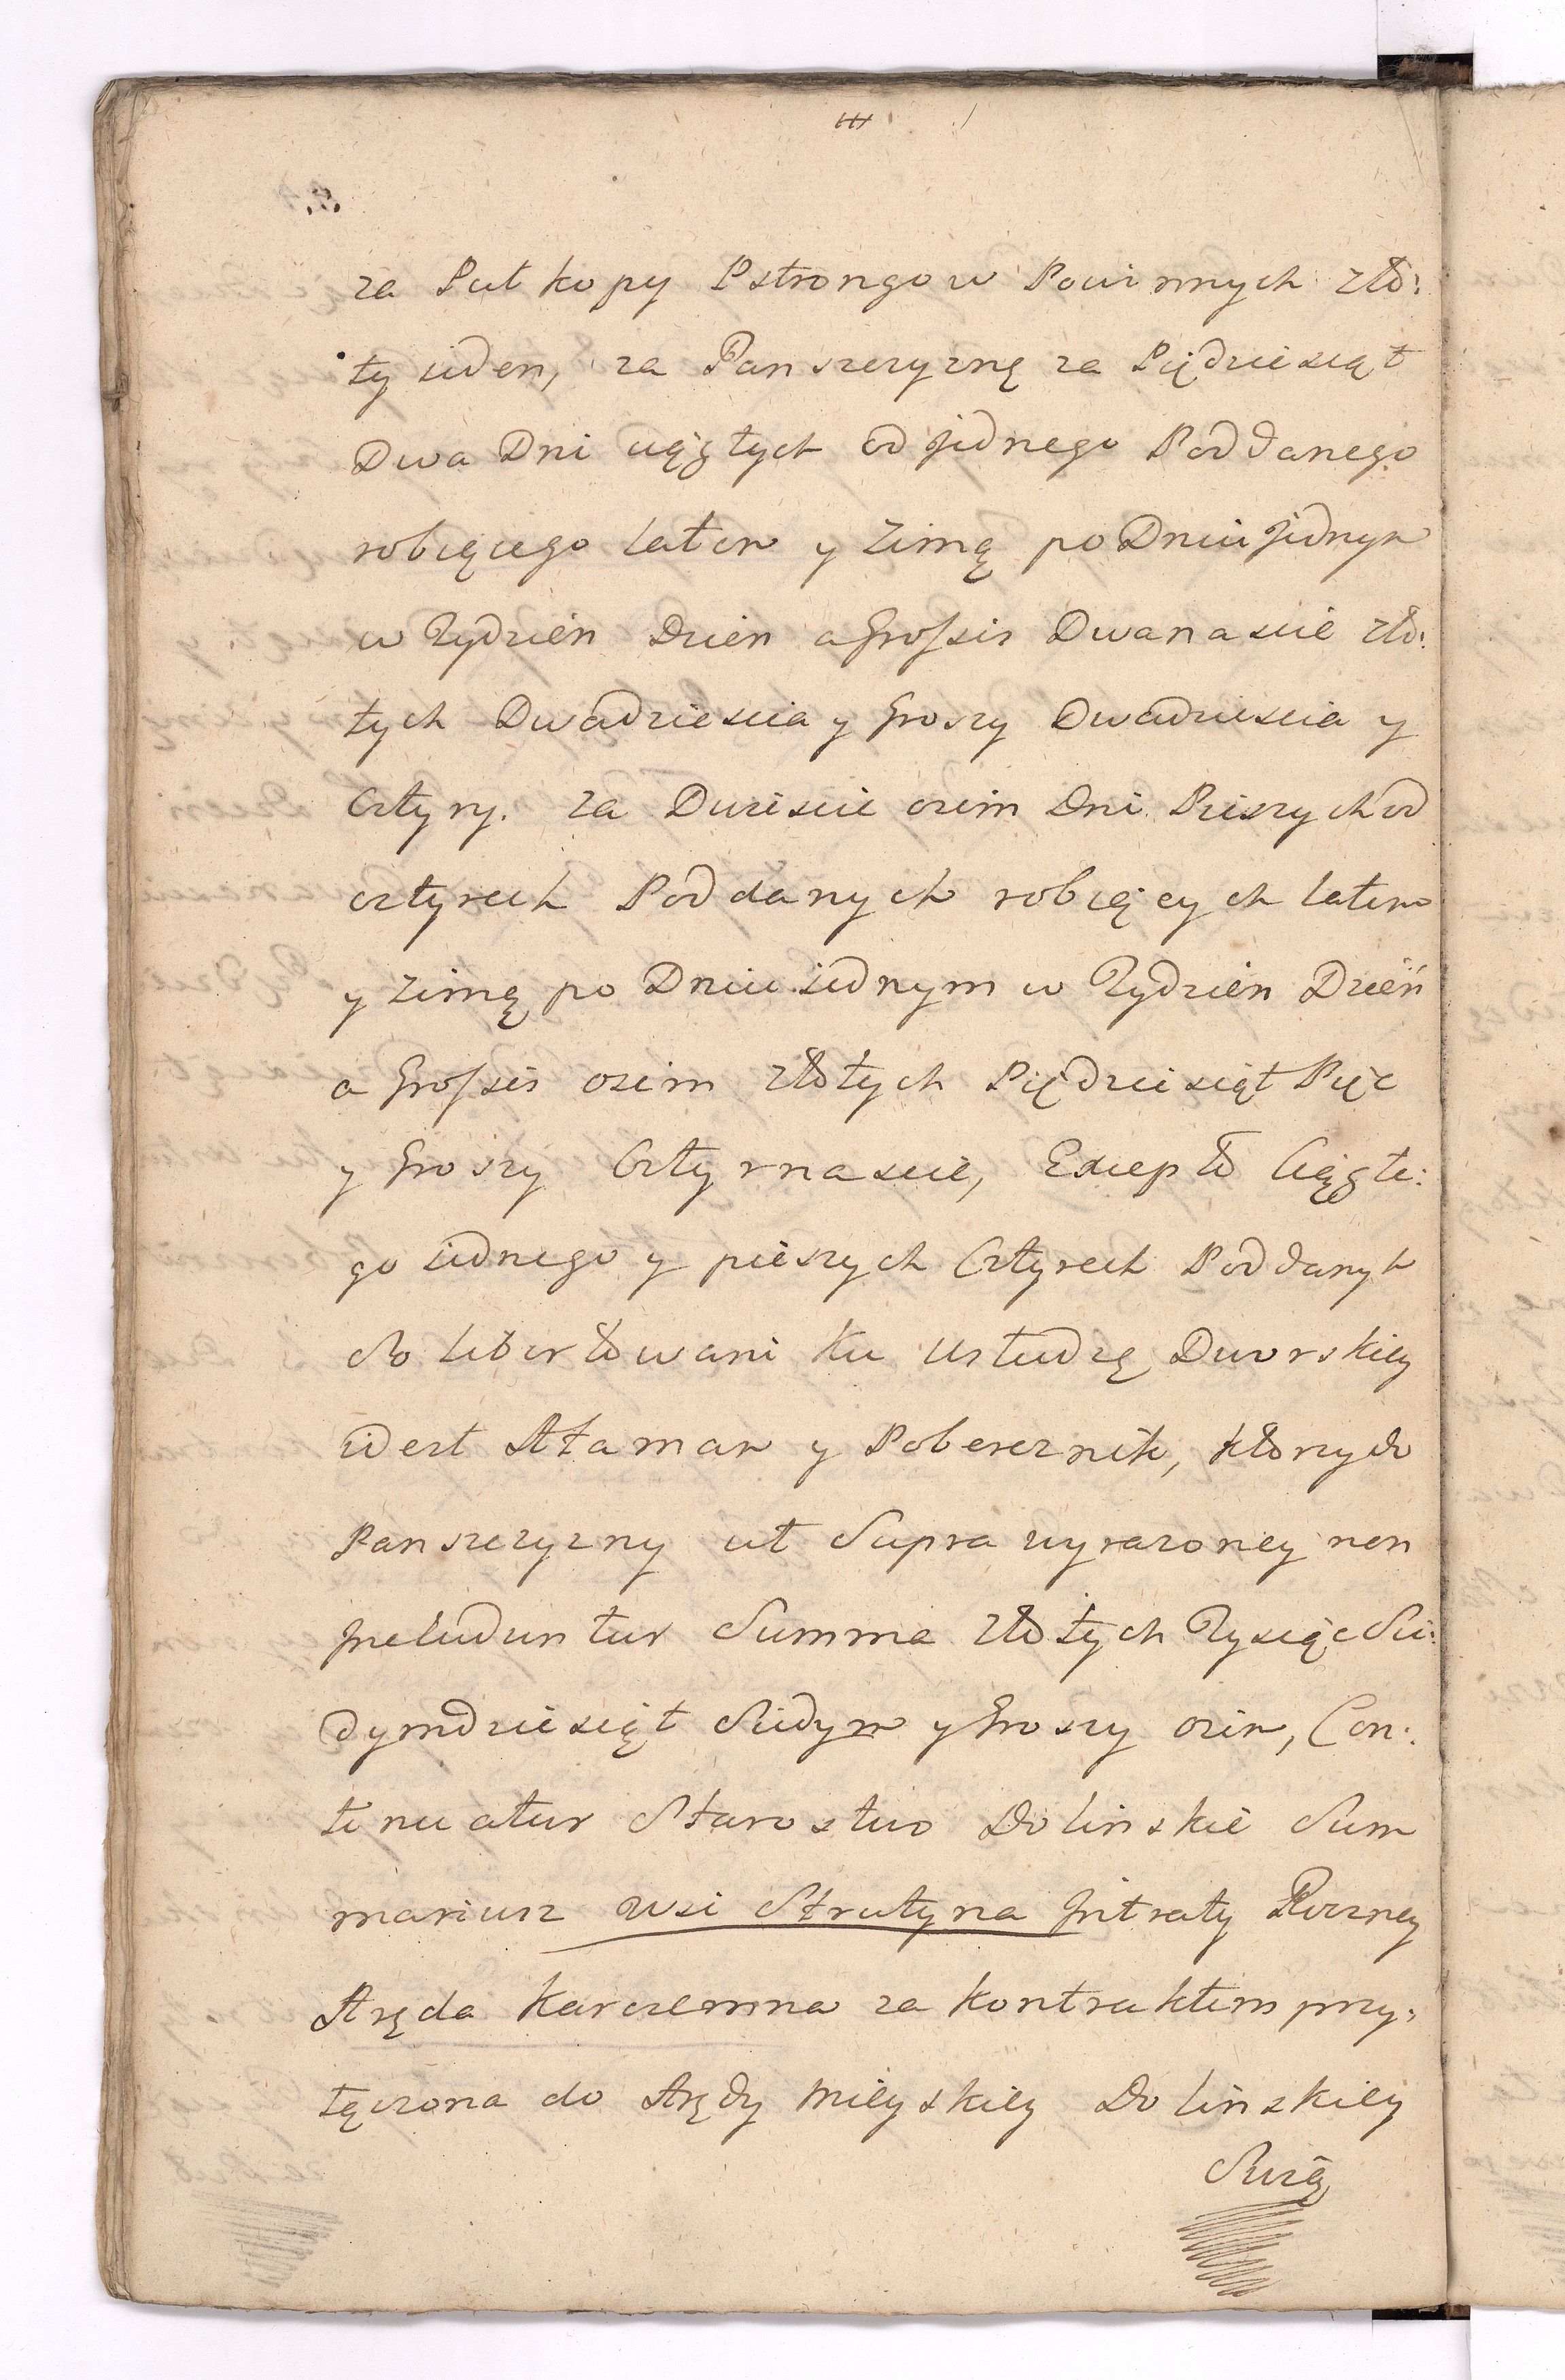 za Puł kopy Pstrongow Powinnych zło:
ty ieden, za Panszczyznę za Piędziesiąt
Dwa Dni ciągłych od jednego Poddanego
robiącego latem y Zimą po Dniu jednym
w Tydzien Dzien a Grossis Dwanascie zło:
tych Dwadziescia y Groszy Dwadziescia y
Cztyry. za Dwiescie osim Dni Pieszych od
cztyrech Poddanych robiących latem
y Zimą po Dniu iednym w Tydzien Dzień
a Grossis osim złotych Pięćdziesiąt Pięc
y Groszy Cztyrnascie, Excepto Ciągłe:
go iednego y pieszych Cztyrech Poddanych
Solibertowani ku Usłudzę Dworskiey
idest Ataman y Pobereznik, ktorzy do
Panszczyzny ut Supra wyrazoney non
Jncluduntur Summa złotych Tysiąc Sie:
dymdziesiąt Siedym y Groszy osim, Con:
tinuatur Starostwo Dolinskie Sum
mariusz wsi Strutyna Jntraty Roczney
Aręda Karczemna za kontraktem przy:
łączona do Arędy Mieyskiey Dolinskiey